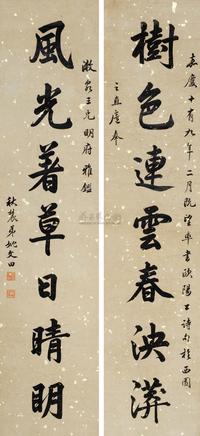 嘉慶十有九年二月既望率書歐陽公詩句於西園
之直廬奉
樹色連雲春泱漭
風光著草日晴明
漱泉三兄明府雅鑑
秋農弟姚文田